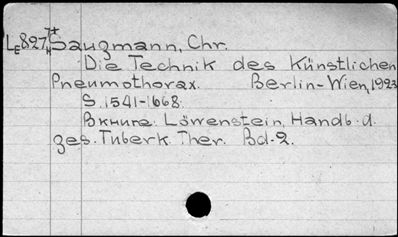 LE827 Saugmann, Chr.
Die Technik des Künstlichen
Pneumothorax. Berlin-Wien, 1923
S. 1541-1668.
Вкниге: Löwenstein, Handb. d.
ges. Tuberk. Ther. Bd. 2.